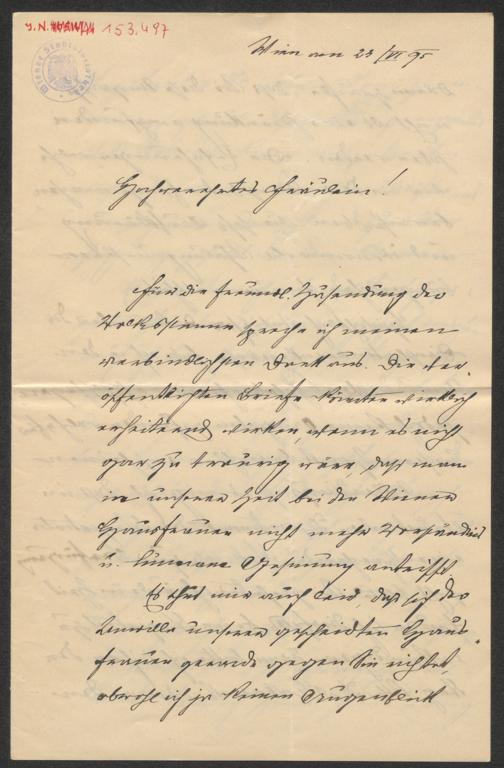 J.N. 153.497
Wiener Stadtbibliothek
Wien am 23/VI 95
Hochverehrtes Fräulein!
Für die freundl. Zusendung der
Volksstimme spreche ich meinen
verbindlichsten Dank aus. Die ver-
öffentlichten Briefe könnten wirklich
erheiternd wirken, wenn es nicht
gar zu traurig wäre, daß man
in unserer Zeit bei den Wiener
Hausfrauen nicht mehr Verständnis
u. humane Gesinnung antrifft.
Es thut mir auch leid, daß sich der
unserer gescheidten Haus-
frauen gerade gegen Sie richtet,
obwohl ich ja keinen Augenblick